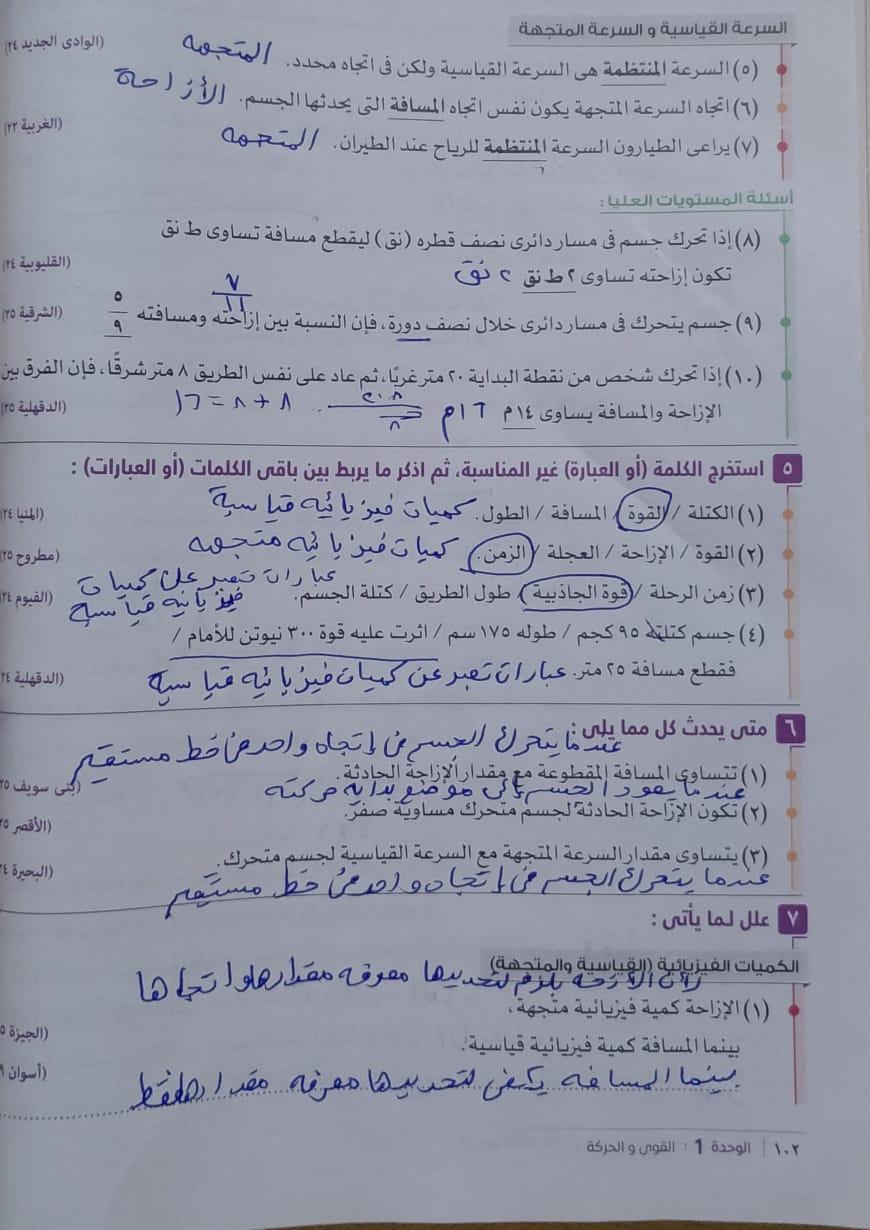 السرعة القياسية و السرعة المتجهة
(٥) السرعة المنتظمة هى السرعة القياسية ولكن فى اتجاه محدد. المتجهه (الوادى الجديد ٢٤)
(٦) اتجاه السرعة المتجهة يكون نفس اتجاه المسافة التى يحدثها الجسم. الأزاحة
(٧) يراعى الطيارون السرعة المنتظمة للرياح عند الطيران. المتجهه (الغربية ٢٢)
أسئلة المستويات العليا :
(٨) إذا تحرك جسم فى مسار دائرى نصف قطره (نق) ليقطع مسافة تساوى ط نق
تكون إزاحته تساوى ٢ ط نق ٢ نق (القليوبية ٢٤)
٧/١١
(٩) جسم يتحرك فى مسار دائرى خلال نصف دورة، فإن النسبة بين إزاحته ومسافته ٥/٩ (الشرقية ٢٥)
(١٠) إذا تحرك شخص من نقطة البداية ٢٠ متر غربًا، ثم عاد على نفس الطريق ٨ متر شرقًا، فإن الفرق بين
الإزاحة والمسافة يساوى ١٤م ١٦م ٨ + ٨ = ١٦ (الدقهلية ٢٥)
٥ استخرج الكلمة (أو العبارة) غير المناسبة، ثم اذكر ما يربط بين باقى الكلمات (أو العبارات) :
(١) الكتلة / القوة / المسافة / الطول. كميات فيزيائيه قياسية (المنيا ٢٤)
(٢) القوة / الإزاحة / العجلة / الزمن. كميات فيزيائيه متجهه (مطروح ٢٥)
عبارات تعبر عن كميات
(٣) زمن الرحلة / قوة الجاذبية / طول الطريق / كتلة الجسم. فيزيائيه قياسية (الفيوم ٢٤)
(٤) جسم كتلته ٩٥ كجم / طوله ١٧٥ سم / اثرت عليه قوة ٣٠٠ نيوتن للأمام /
فقطع مسافة ٢٥ متر. عبارات تعبر عن كميات فيزيائيه قياسية (الدقهلية ٢٤)
٦ متى يحدث كل مما يلى :
عندما يتحرك الجسم فى إتجاه واحد فى خط مستقيم
(١) تتساوى المسافة المقطوعة مع مقدار الإزاحة الحادثة. (بنى سويف ٢٥)
عندما يعود الجسم إلى موضع بدايه حركته
(٢) تكون الإزاحة الحادثة لجسم متحرك مساوية صفر. (الأقصر ٢٥)
(٣) يتساوى مقدار السرعة المتجهة مع السرعة القياسية لجسم متحرك. (البحيرة ٢٤)
عندما يتحرك الجسم فى إتجاه واحد فى خط مستقيم
٧ علل لما يأتى :
الكميات الفيزيائية (القياسية والمتجهة)
لأن الأزاحه يلزم لتحديدها معرفه مقدارها واتجاها
(١) الإزاحة كمية فيزيائية متجهة،
بينما المسافة كمية فيزيائية قياسية. (الجيزة
بينما المسافه يكفى لتحديدها معرفه مقدارها فقط (أسوان
١٠٢ | الوحدة 1 : القوى و الحركة